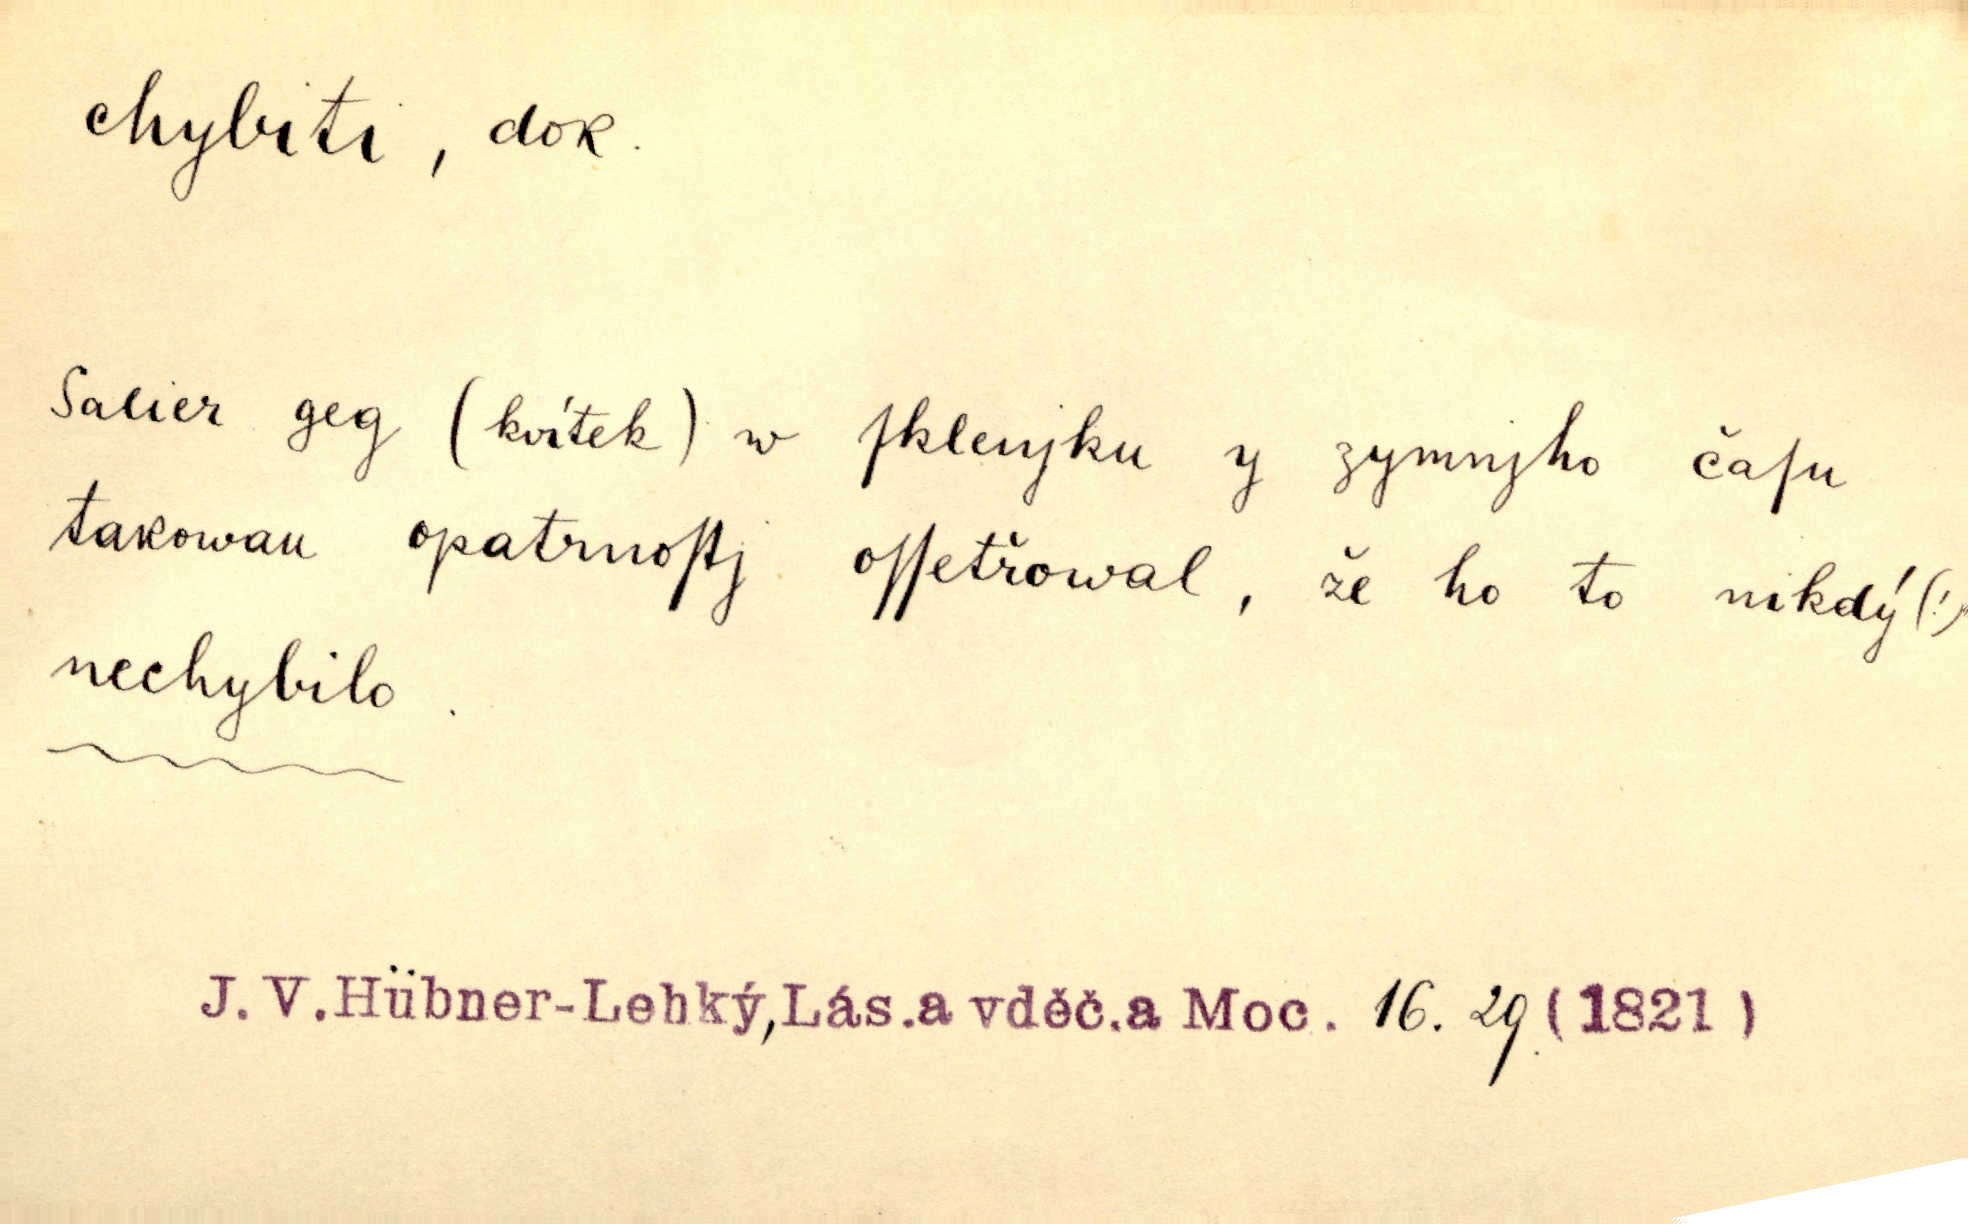 chybiti, dok.
Salier geg (kvítek) w ſklenjku y zymnjho čaſu
takowau opatrnoſtj oſſetřowal, že ho to nikdý (!)
nechybilo.
J. V. Hübner-Lehký, Lás. a vděč. a Moc. 16. 29 (1821)